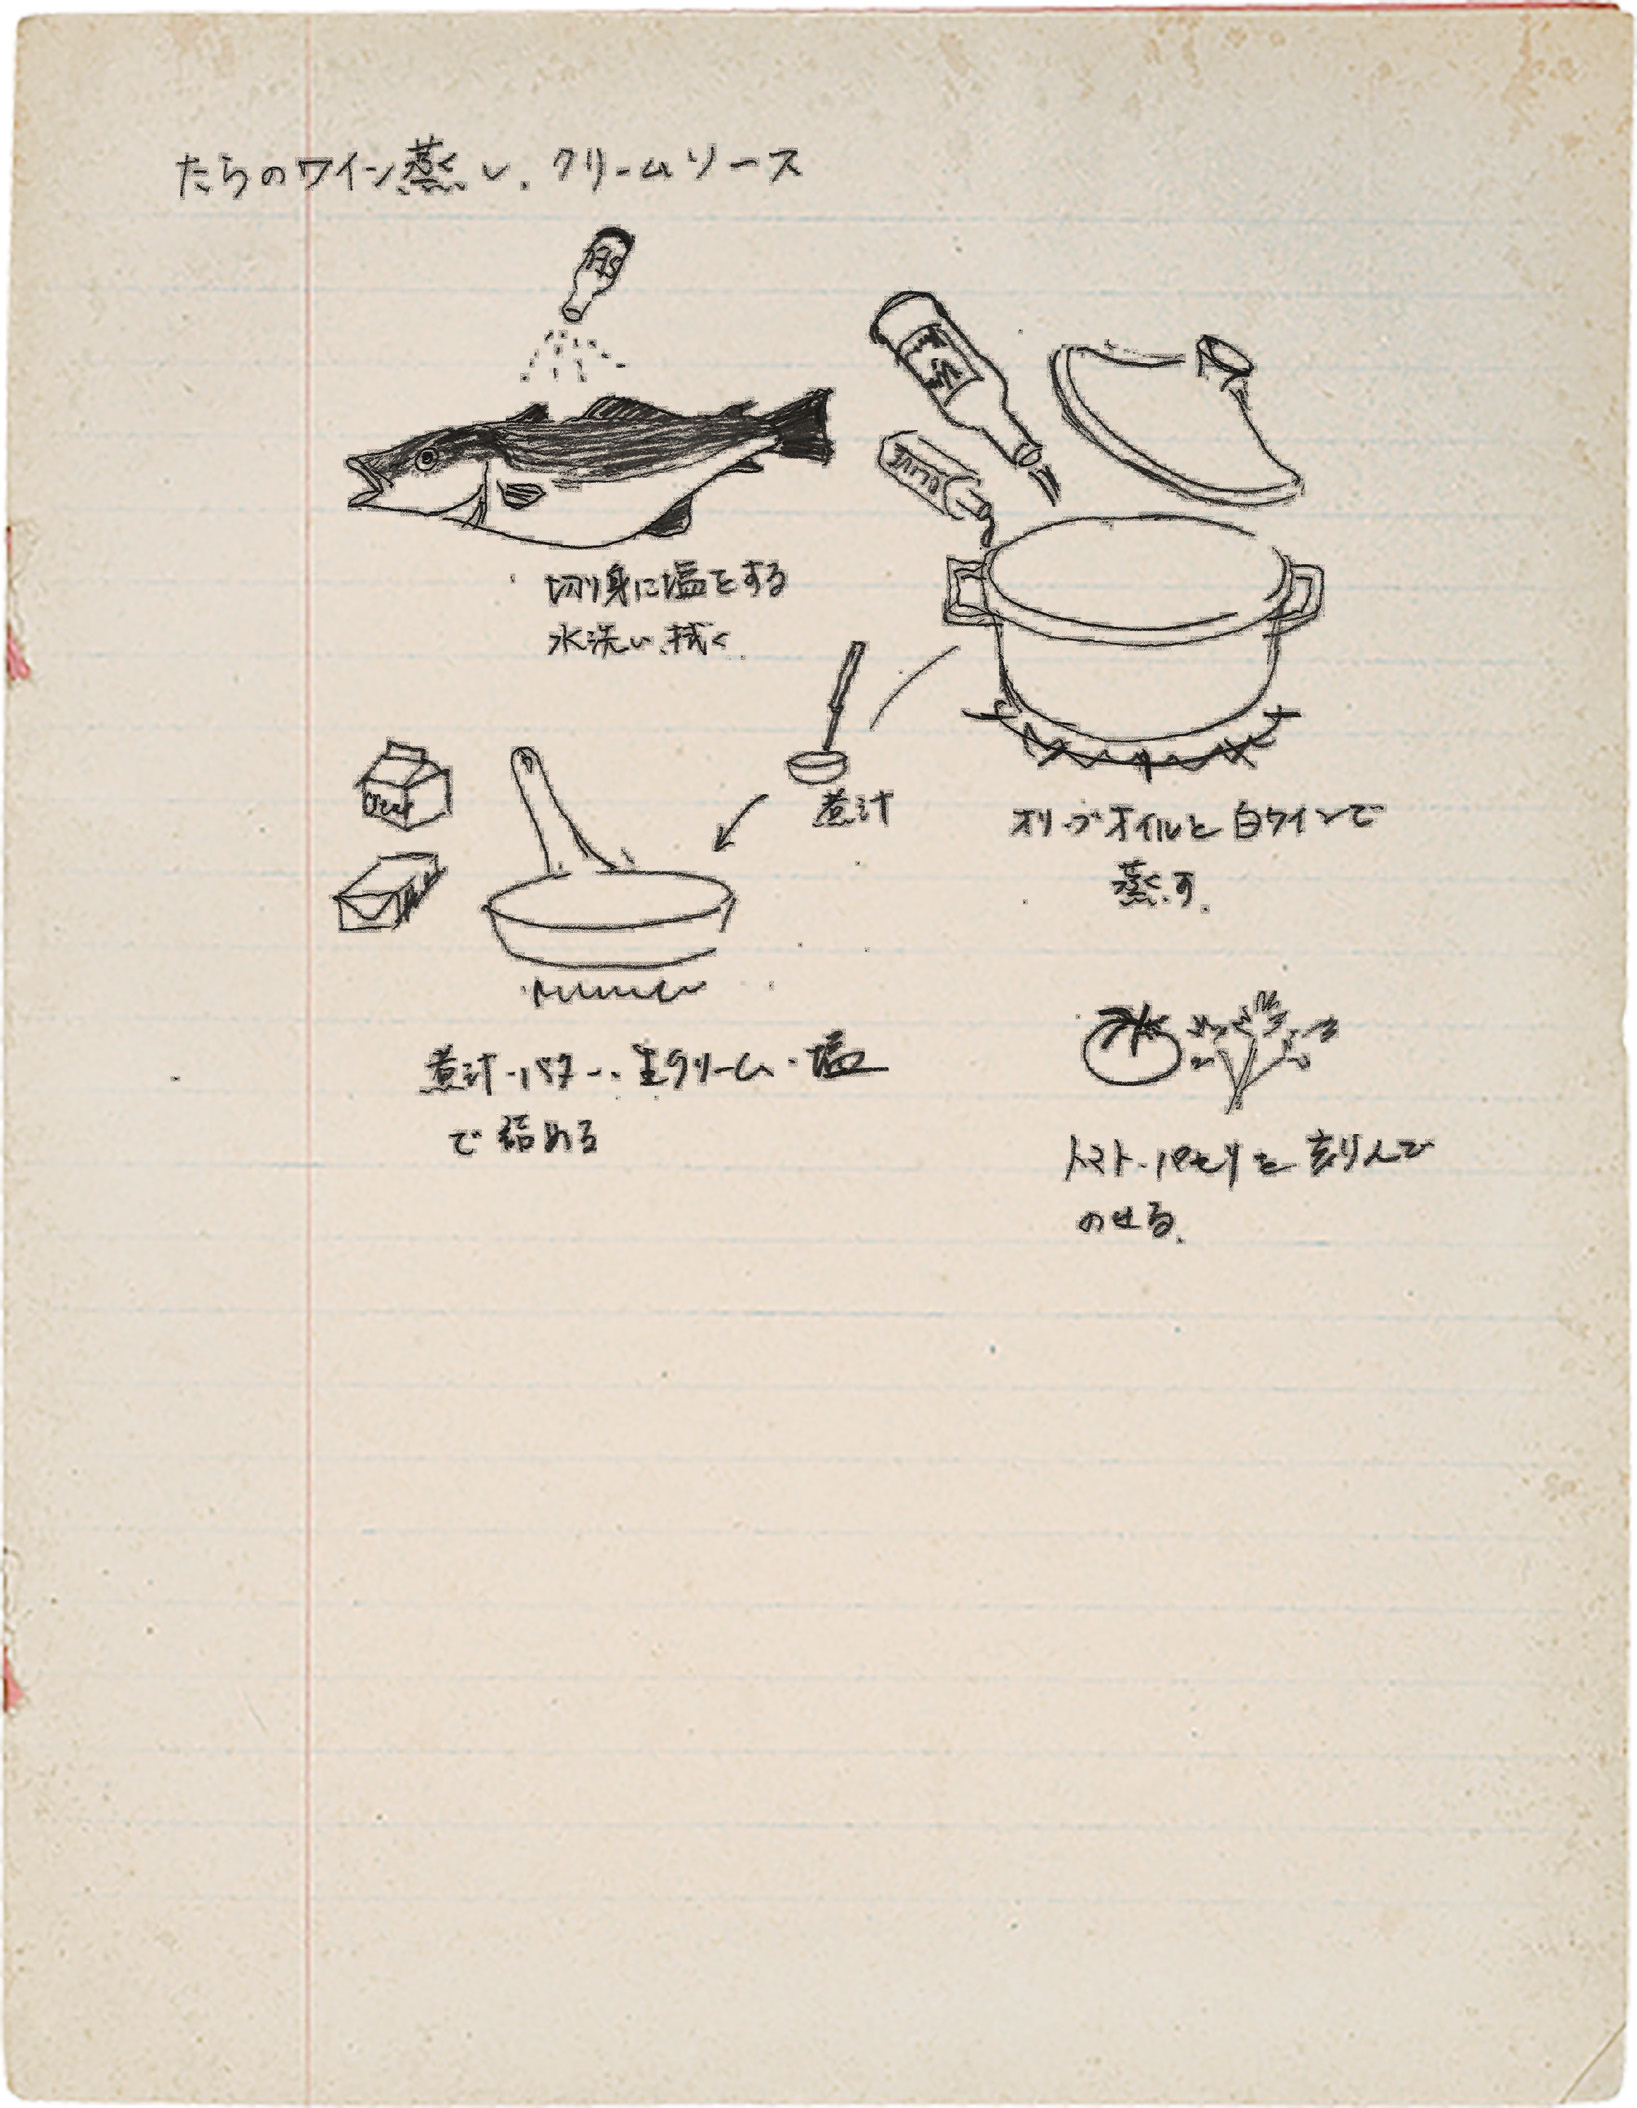 たらのワイン蒸し.クリームソース
切り身に塩をする
水洗い、拭く.
OLIVE
煮汁
オリーブオイルと白ワインで
蒸す.
煮汁・バター・生クリーム・塩
で詰める
トマト・パセリを刻んで
のせる.